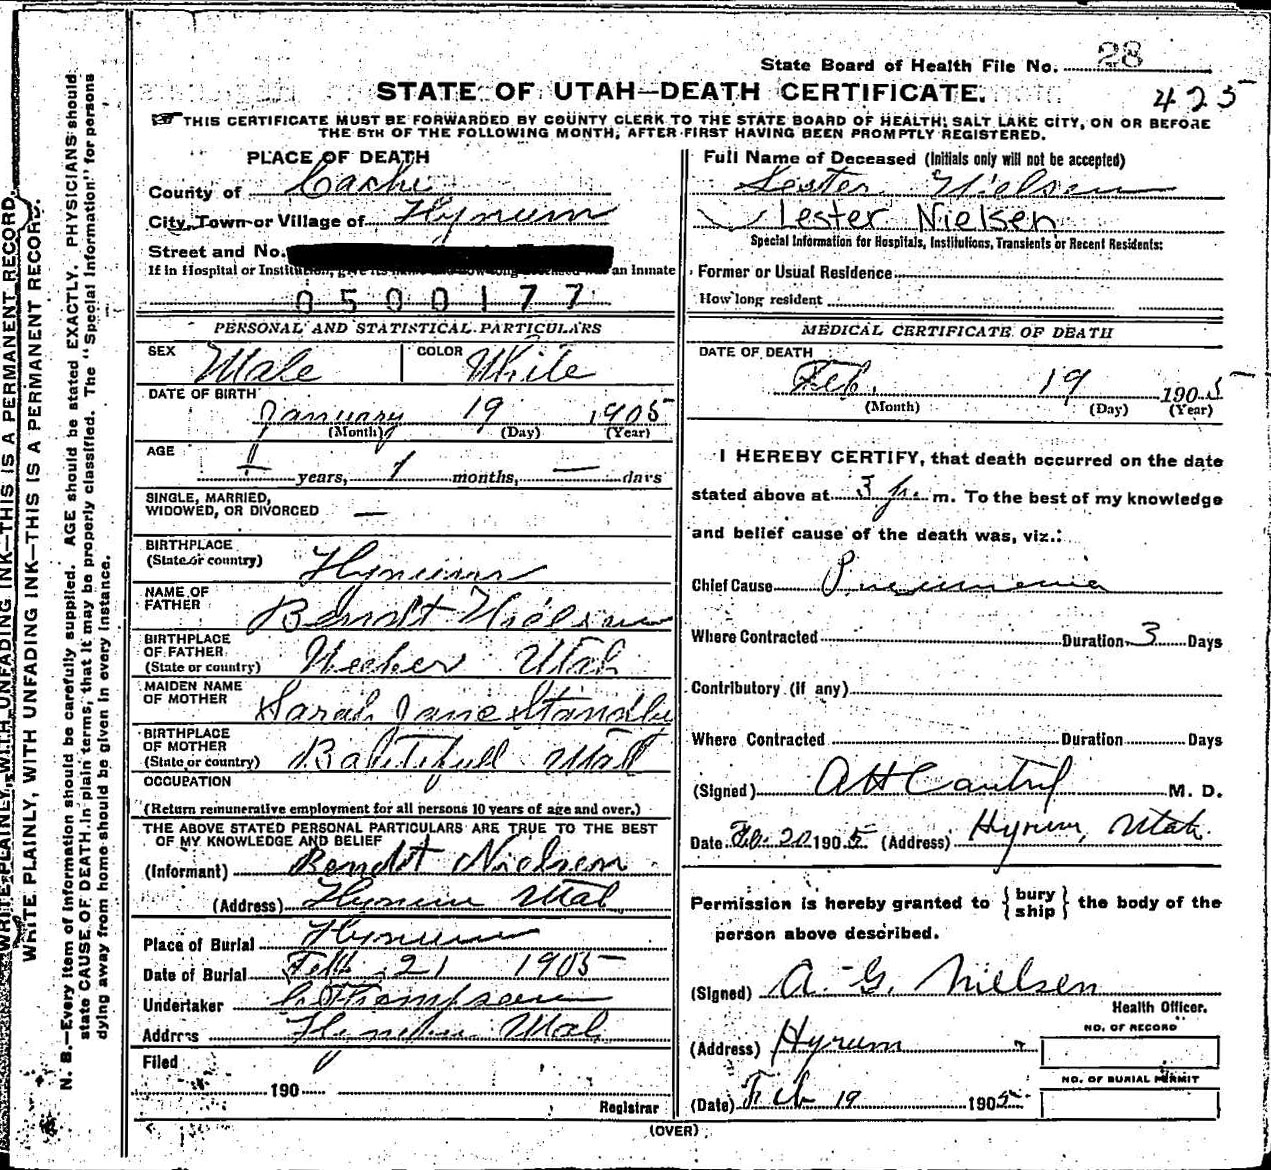 State Board of Health File No. 28
STATE OF UTAH—DEATH CERTIFICATE.
425
THIS CERTIFICATE MUST BE FORWARDED BY COUNTY CLERK TO THE STATE BOARD OF HEALTH, SALT LAKE CITY, ON OR BEFORE
THE 5TH OF THE FOLLOWING MONTH, AFTER FIRST HAVING BEEN PROMPTLY REGISTERED.
PLACE OF DEATH
County of Cache
City, Town or Village of Hyrum
Street and No.
If in Hospital or Institution, give its name and how long deceased was an Inmate
0500177
PERSONAL AND STATISTICAL PARTICULARS
SEX Male COLOR White
DATE OF BIRTH
January 19 1905
(Month) (Day) (Year)
AGE
— years, 1 months, — days
SINGLE, MARRIED,
WIDOWED, OR DIVORCED —
BIRTHPLACE
(State or country) Hyrum
NAME OF
FATHER Bendt Nielsen
BIRTHPLACE
OF FATHER
(State or country) Utah
MAIDEN NAME
OF MOTHER Sarah Jane
BIRTHPLACE
OF MOTHER
(State or country) Utah
OCCUPATION
(Return remunerative employment for all persons 10 years of age and over.)
THE ABOVE STATED PERSONAL PARTICULARS ARE TRUE TO THE BEST
OF MY KNOWLEDGE AND BELIEF
(Informant) Bendt Nielsen
(Address) Hyrum Utah
Place of Burial Hyrum
Date of Burial Feb 21 1905
Undertaker
Address Utah
Filed
190
Registrar
Full Name of Deceased (Initials only will not be accepted)
Lester Nielsen
Lester Nielsen
Special Information for Hospitals, Institutions, Transients or Recent Residents:
Former or Usual Residence
How long resident
MEDICAL CERTIFICATE OF DEATH
DATE OF DEATH
Feb. 19 1905
(Month) (Day) (Year)
I HEREBY CERTIFY, that death occurred on the date
stated above at 3 p. m. To the best of my knowledge
and belief cause of the death was, viz.:
Chief Cause Pneumonia
Where Contracted Duration 3 Days
Contributory (if any)
Where Contracted Duration Days
(Signed) M. D.
Date Feb. 20 1905 (Address) Hyrum, Utah.
Permission is hereby granted to { bury
ship } the body of the
person above described.
(Signed) A. G. Nielsen
Health Officer.
(Address) Hyrum
NO. OF RECORD
NO. OF BURIAL PERMIT
(Date) Feb 19 1905
(OVER)
WRITE PLAINLY, WITH UNFADING INK—THIS IS A PERMANENT RECORD.
WRITE PLAINLY, WITH UNFADING INK—THIS IS A PERMANENT RECORD.
N. B.—Every item of information should be carefully supplied. AGE should be stated EXACTLY. PHYSICIANS should
state CAUSE OF DEATH in plain terms, that it may be properly classified. The "Special Information" for persons
dying away from home should be given in every instance.